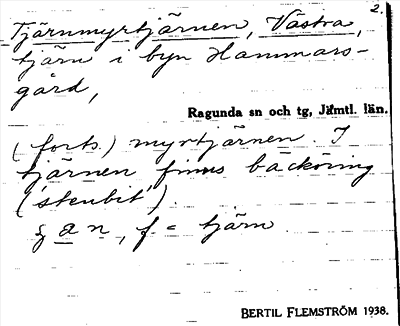 2.
Tjärnmyrtjärnen, Västra,
tjärn i byn Hammars-
gård,
Ragunda sn och tg, Jämtl. län.
(forts.) myrtjärnen. I
tjärnen finns bäcköring
('stenbit').
g a n, f = tjärn
BERTIL FLEMSTRÖM 1938.